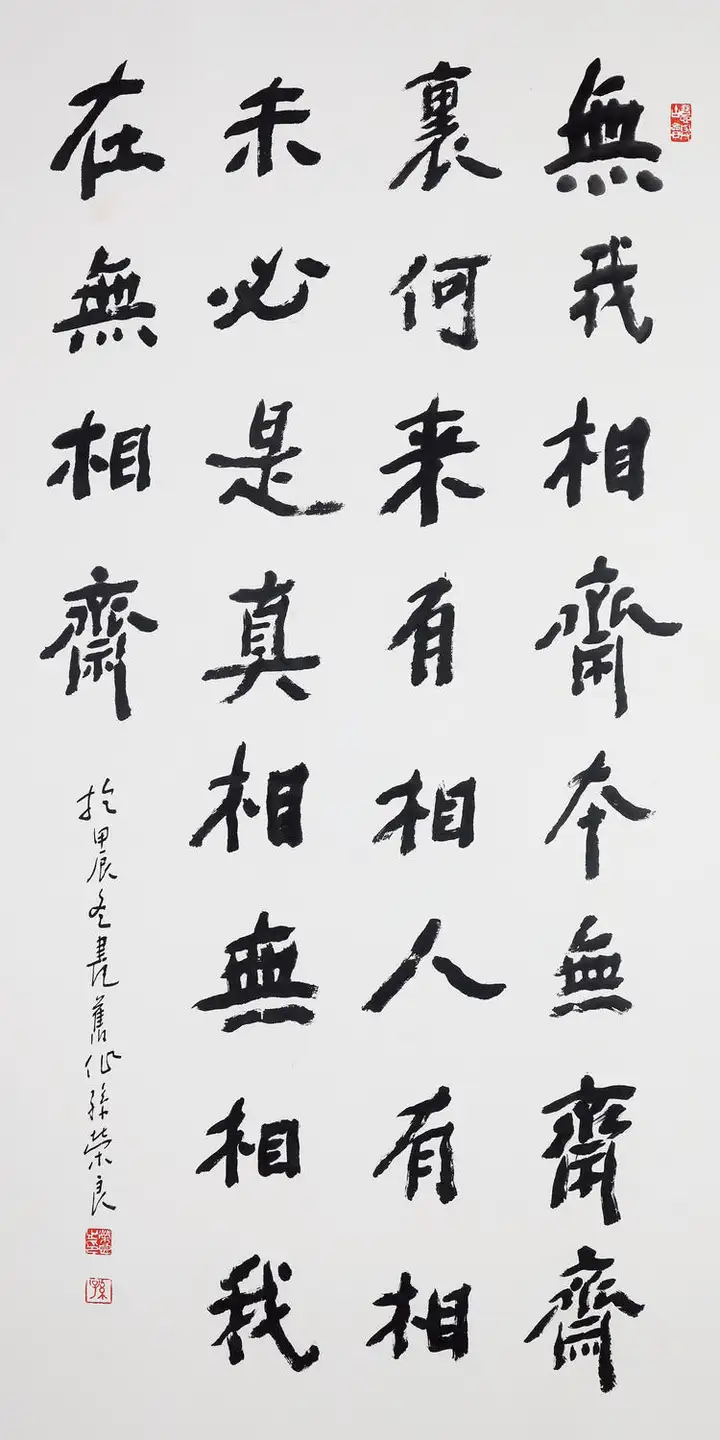 無我相齋本無齋齋
裏何来有相人有相
未必是真相無相我
在無相齋
於甲辰冬書舊作孫榮良
孫